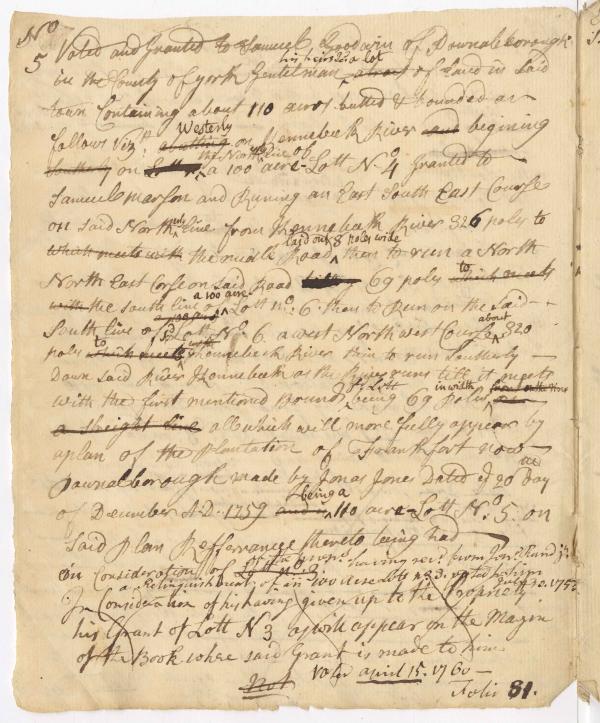 No
5 Voted and Granted to Samuel Goodwin of Pownalborough
in the County of york Gentelman his heirs &c a lot of Land in Said
town Containing about 110 acres butted & bounded as
follows Viz: Westerly on Kennebeck River and begining
Southerly on the North line of a 100 acre Lott No. 4 Granted to
Samuel Marson and Runing an East South East Course
on said North line from Kennebeck River 326 poles to
which meets with the midle Road laid out 8 poles wide then to run a North
North East Corse on said Road 69 poles to which meets
with the south line of a 100 acre Lott No. 6. then to Run on the Said
South line of sd Lott No. 6 a west North west Course about 320
poles to which meets with Kennebeck River then to run Southerly
Down said River Kennebeck as the River runs till it meets
with the first mentioned Bounds sd Lott being 69 poles in width
a streight line all which will more fully appear by
a plan of the plantation of Frankfort now
Pownalborough made by Jonas Jones Dated ye 20 Day
of December A.D. 1759 and is being a 110 acre Lott No. 5. on
Said Plan Refferrance thereto being had
in Consideration of
a Relinquishment of 100 acre Lott No 3. voted to him
In Consideration of his having given up to the Propriety
his Grant of Lott N 3 as will appear on the Margin
of the Book where said Grant is made to him
Not Voted april 15. 1760
Folio 81.